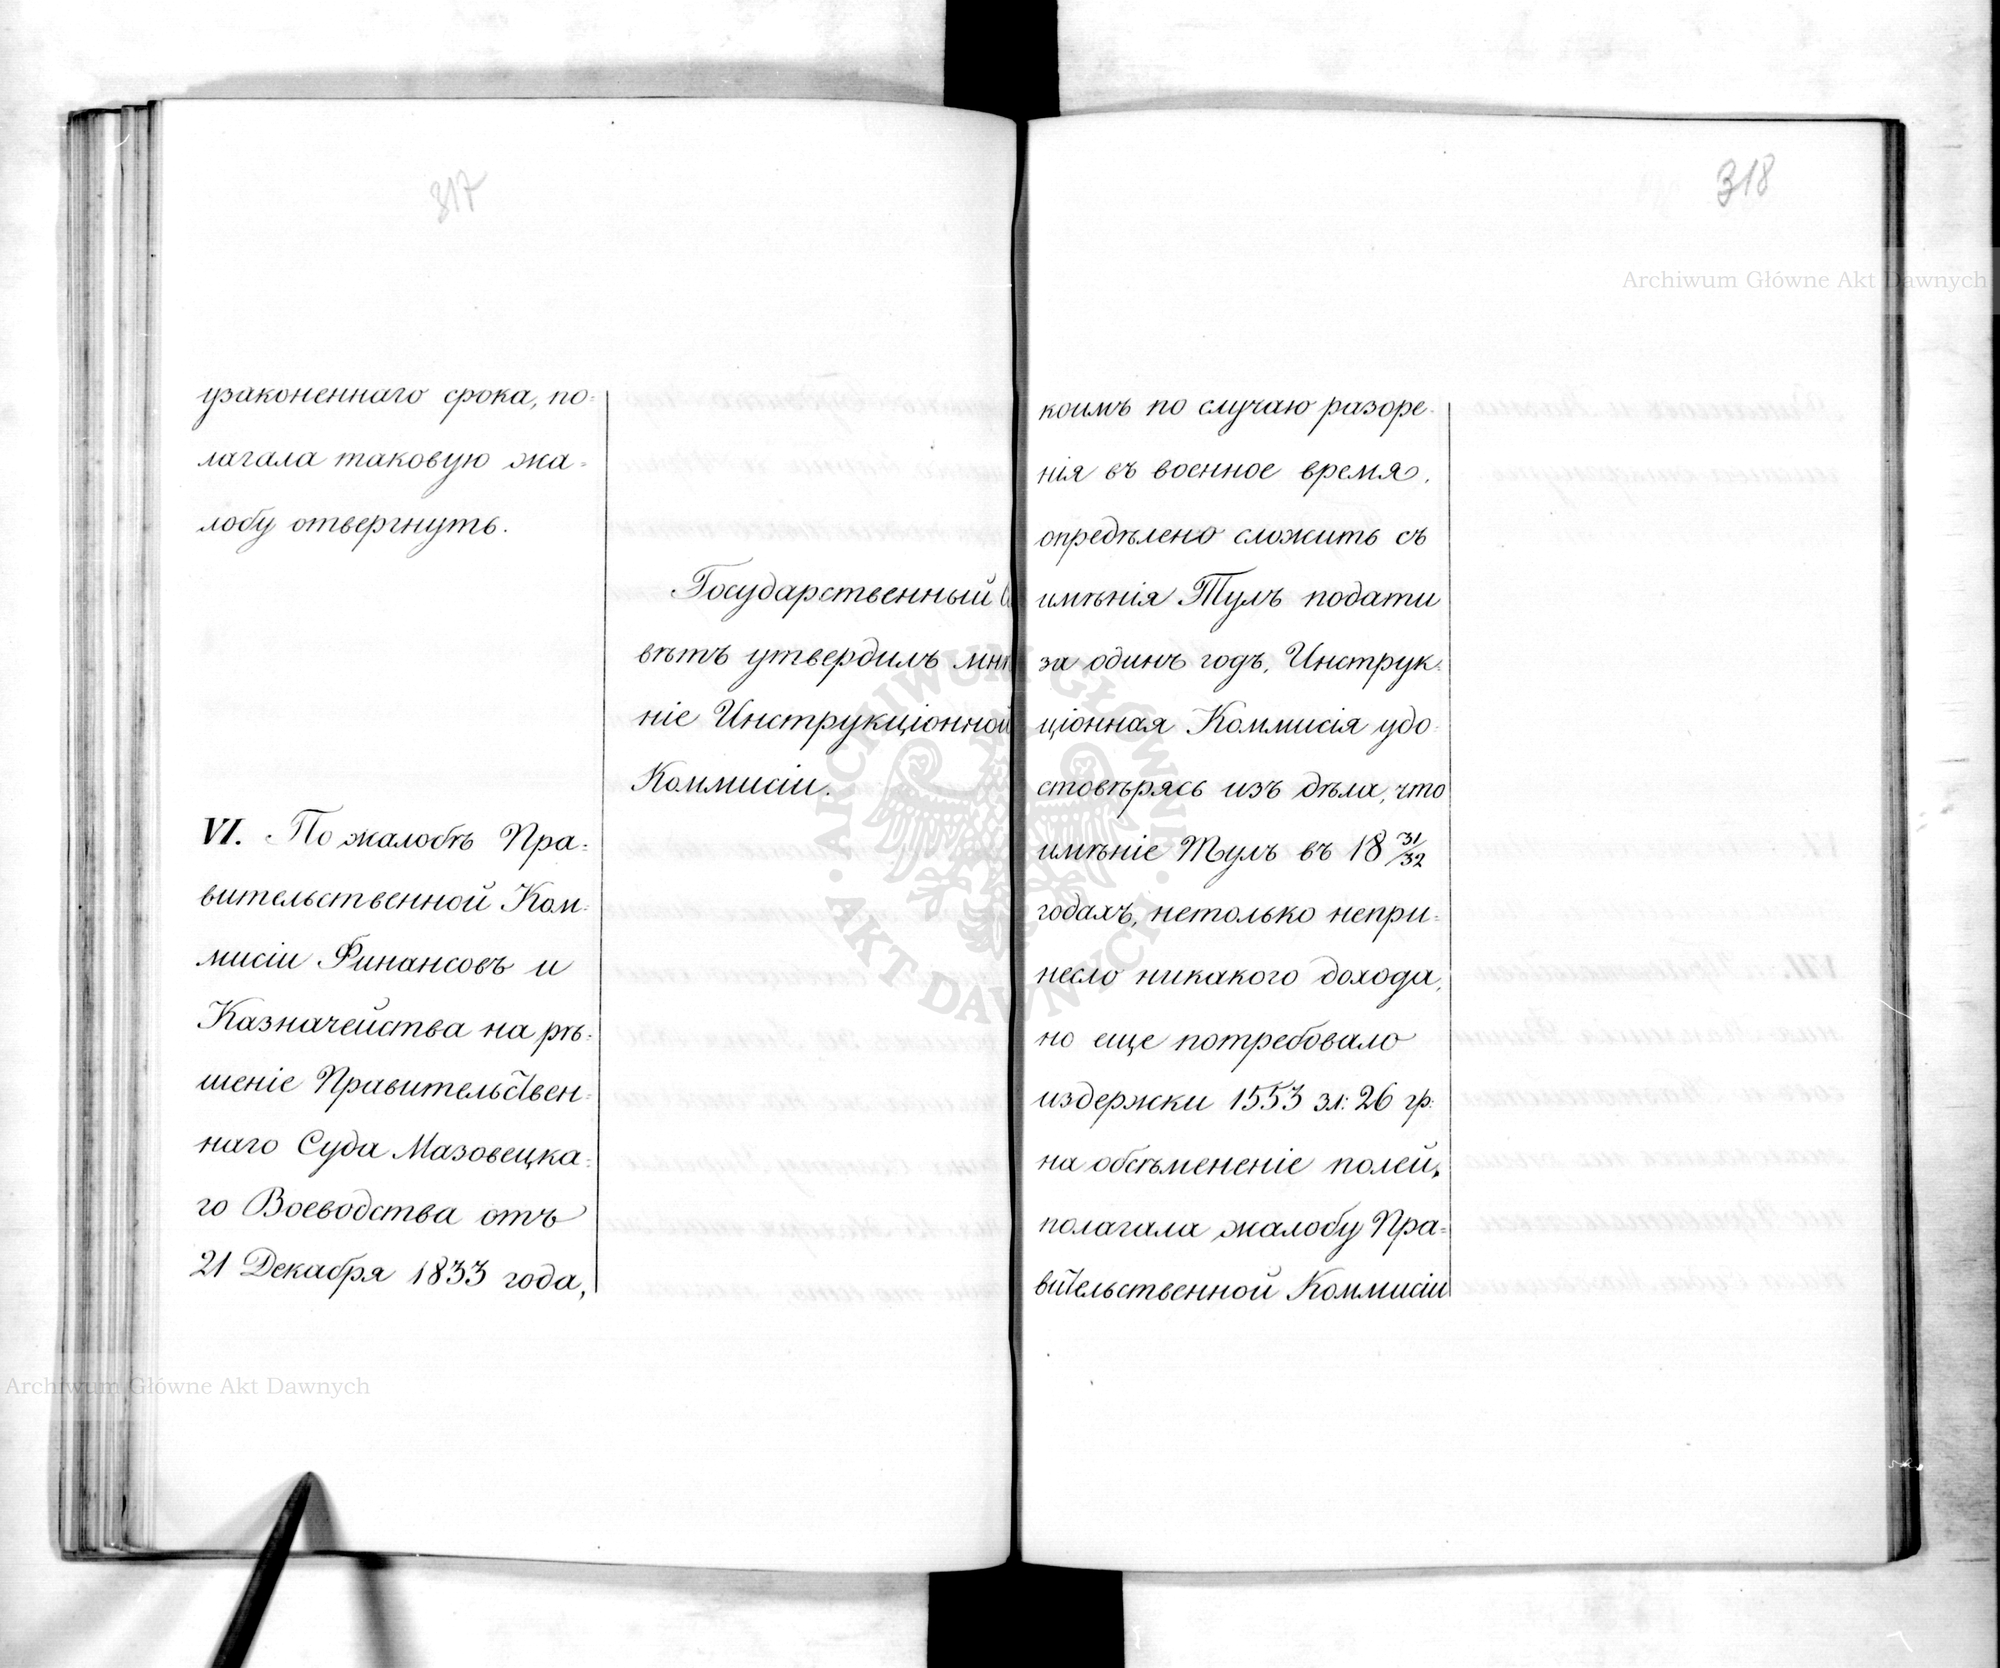 317
узаконеннаго срока, по=
лагала таковую жа=
лобу отвергнуть.
Государственный
вѣтъ утвердилъ мнѣ
ніе Инструкціонной
Коммисіи.
VI. По жалобѣ Пра=
вительственной Ком=
мисіи Финансовъ и
Казначейства на рѣ=
шеніе Правительствен=
наго Суда Мазовецка=
го Воеводства отъ
21 Декабря 1833 года,
318
коимъ по случаю разоре=
нія въ военное время,
опредѣлено сложить съ
имѣнія Тулъ подати
за одинъ годъ, Инструк=
ціонная Коммисія удо=
стовѣрясь изъ дѣла, что
имѣніе Тулъ въ 18 31/32
годахъ, нетолько непри=
несло никакого дохода,
но еще потребовало
издержки 1553 зл: 26 гр:
на обсѣмененіе полей,
полагала жалобу Пра=
вительственной Коммисіи
Archiwum Główne Akt Dawnych
Archiwum Główne Akt Dawnych
ARCHIWUM GŁÓWNE
AKT DAWNYCH